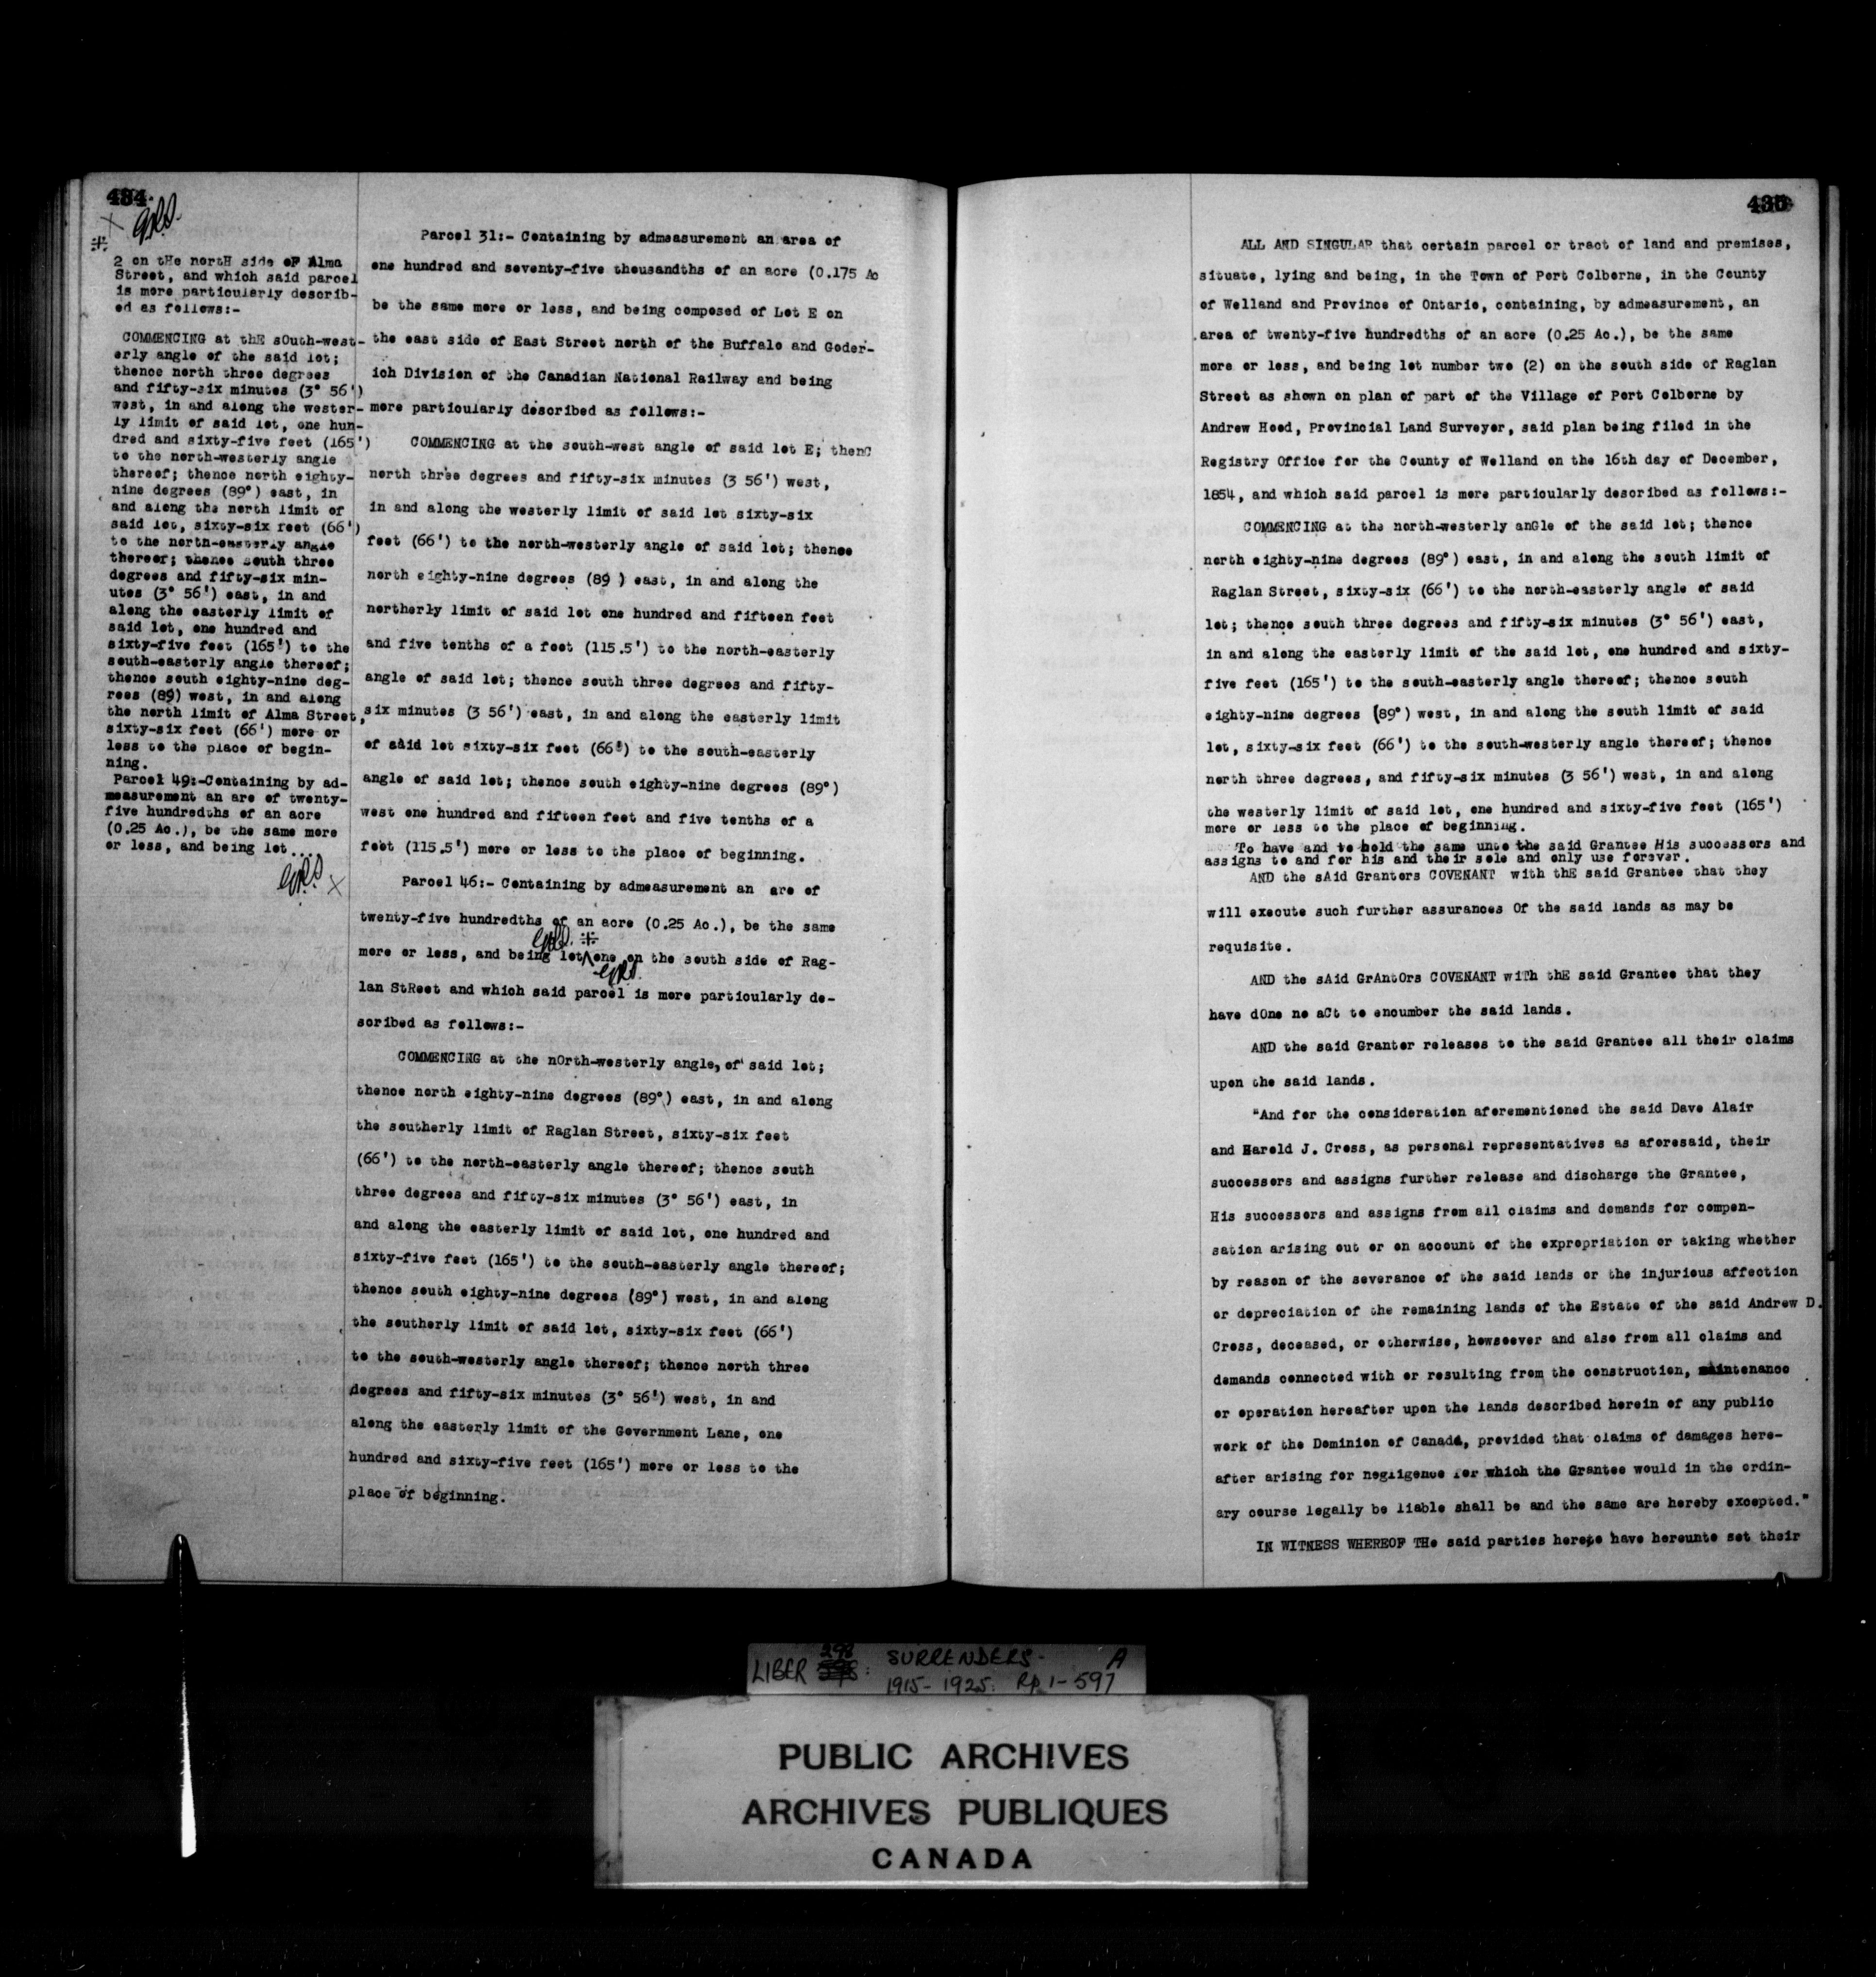 434
2 on tHe nortH side oF Alma
Street, and which said parcel
is more particularly describ-
ed as follows:-
COMMENCING at thE sOuth-west-
erly angle of the said lot;
thence north three degrees
and fifty-six minutes (3° 56')
west, in and along the wester-
ly limit of said lot, one hun-
dred and sixty-five feet (165')
to the north-westerly angle
thereof; thence north eighty-
nine degrees (89°) east, in
and along the north limit of
said lot, sixty-six feet (66')
to the north-easterly angle
thereof; thence south three
degrees and fifty-six min-
utes (3° 56') east, in and
along the easterly limit of
said lot, one hundred and
sixty-five feet (165') to the
south-easterly angle thereof;
thence south eighty-nine deg-
rees (89) west, in and along
the north limit of Alma Street,
sixty-six feet (66') more or
less to the place of begin-
ning.
Parcel 49:-Containing by ad-
measurement an are of twenty-
five hundredths of an acre
(0.25 Ac.), be the same more
or less, and being lot....
Parcel 31:- Containing by admeasurement an area of
one hundred and seventy-five thousandths of an acre (0.175 Ac
be the same more or less, and being composed of Lot E on
the east side of East Street north of the Buffalo and Goder-
ich Division of the Canadian National Railway and being
more particularly described as follows:-
COMMENCING at the south-west angle of said lot E; thenC
north three degrees and fifty-six minutes (3 56') west,
in and along the westerly limit of said lot sixty-six
feet (66') to the north-westerly angle of said lot; thence
north eighty-nine degrees (89 ) east, in and along the
northerly limit of said lot one hundred and fifteen feet
and five tenths of a foot (115.5') to the north-easterly
angle of said lot; thence south three degrees and fifty-
six minutes (3 56') east, in and along the easterly limit
of said lot sixty-six feet (66') to the south-easterly
angle of said lot; thence south eighty-nine degrees (89°)
west one hundred and fifteen feet and five tenths of a
feet (115.5') more or less to the place of beginning.
Parcel 46:- Containing by admeasurement an are of
twenty-five hundredths of an acre (0.25 Ac.), be the same
more or less, and being lot one on the south side of Rag-
lan StReet and which said parcel is more particularly de-
scribed as follows:-
COMMENCING at the nOrth-westerly angle, of said lot;
thence north eighty-nine degrees (89°) east, in and along
the southerly limit of Raglan Street, sixty-six feet
(66') to the north-easterly angle thereof; thence south
three degrees and fifty-six minutes (3° 56') east, in
and along the easterly limit of said lot, one hundred and
sixty-five feet (165') to the south-easterly angle thereof;
thence south eighty-nine degrees (89°) west, in and along
the southerly limit of said lot, sixty-six feet (66')
to the south-westerly angle thereof; thence north three
degrees and fifty-six minutes (3° 56') west, in and
along the easterly limit of the Government Lane, one
hundred and sixty-five feet (165') more or less to the
place of beginning.
435
ALL AND SINGULAR that certain parcel or tract of land and premises,
situate, lying and being, in the Town of Port Colborne, in the County
of Welland and Province of Ontario, containing, by admeasurement, an
area of twenty-five hundredths of an acre (0.25 Ac.), be the same
more or less, and being lot number two (2) on the south side of Raglan
Street as shown on plan of part of the Village of Port Colborne by
Andrew Hood, Provincial Land Surveyor, said plan being filed in the
Registry Office for the County of Welland on the 16th day of December,
1854, and which said parcel is more particularly described as follows:-
COMMENCING at the north-westerly anGle of the said lot; thence
north eighty-nine degrees (89°) east, in and along the south limit of
Raglan Street, sixty-six (66') to the north-easterly angle of said
lot; thence south three degrees and fifty-six minutes (3° 56') east,
in and along the easterly limit of the said lot, one hundred and sixty-
five feet (165') to the south-easterly angle thereof; thence south
eighty-nine degrees (89°) west, in and along the south limit of said
lot, sixty-six feet (66') to the south-westerly angle thereof; thence
north three degrees, and fifty-six minutes (3 56') west, in and along
the westerly limit of said lot, one hundred and sixty-five feet (165')
more or less to the place of beginning.
To have and to hold the same unto the said Grantee His successors and
assigns to and for his and their sole and only use forever.
AND the sAid Grantors COVENANT with thE said Grantee that they
will execute such further assurances Of the said lands as may be
requisite.
AND the sAid GrAntOrs COVENANT wiTh thE said Grantee that they
have dOne no aCt to encumber the said lands.
AND the said Grantor releases to the said Grantee all their claims
upon the said lands.
"And for the consideration aforementioned the said Dave Alair
and Harold J. Cross, as personal representatives as aforesaid, their
successors and assigns further release and discharge the Grantee,
His successors and assigns from all claims and demands for compen-
sation arising out or on account of the expropriation or taking whether
by reason of the severance of the said lands or the injurious affection
or depreciation of the remaining lands of the Estate of the said Andrew D.
Cross, deceased, or otherwise, howsoever and also from all claims and
demands connected with or resulting from the construction, maintenance
or operation hereafter upon the lands described herein of any public
work of the Dominion of Canada, provided that claims of damages here-
after arising for negligence for which the Grantee would in the ordin-
ary course legally be liable shall be and the same are hereby excepted."
IN WITNESS WHEREOF THe said parties hereto have hereunto set their
LIBER 398: SURRENDERS- A
1915-1925. Pp 1-597
PUBLIC ARCHIVES
ARCHIVES PUBLIQUES
CANADA